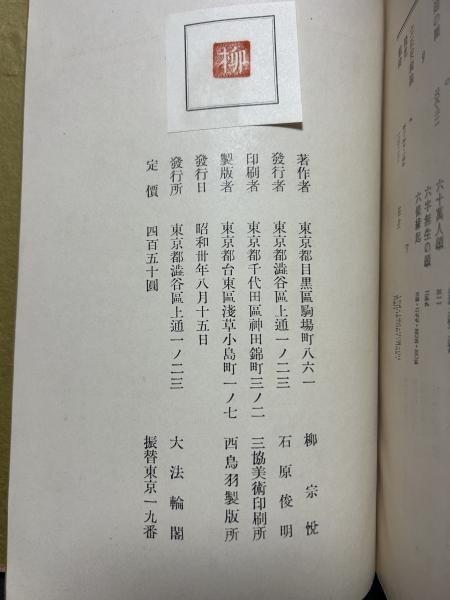 柳
著作者 東京都目黒區駒場町八六一 柳宗悅
發行者 東京都澁谷區上通一ノ二三 石原俊明
印刷者 東京都千代田區神田錦町三ノ二 三協美術印刷所
製版者 東京都台東區淺草小島町一ノ七 西鳥羽製版所
發行日 昭和卅年八月十五日
發行所 東京都澁谷區上通一ノ二三 大法輪閣
定價 四百五十圓 振替東京一九番
六十萬人頌
六字無生の頌